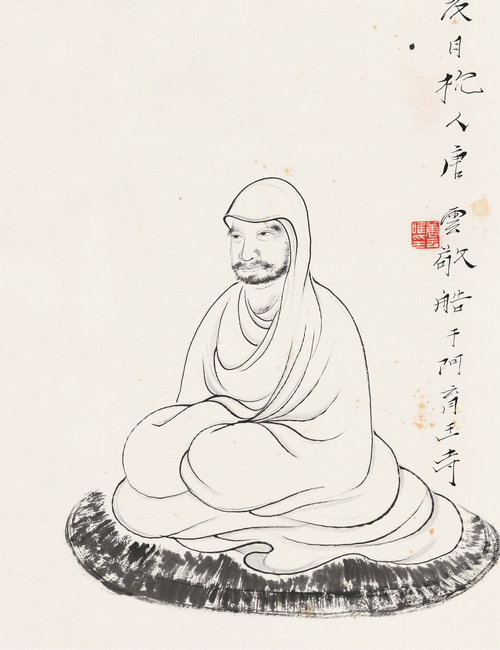 月杭人唐雲敬艁于阿育王寺